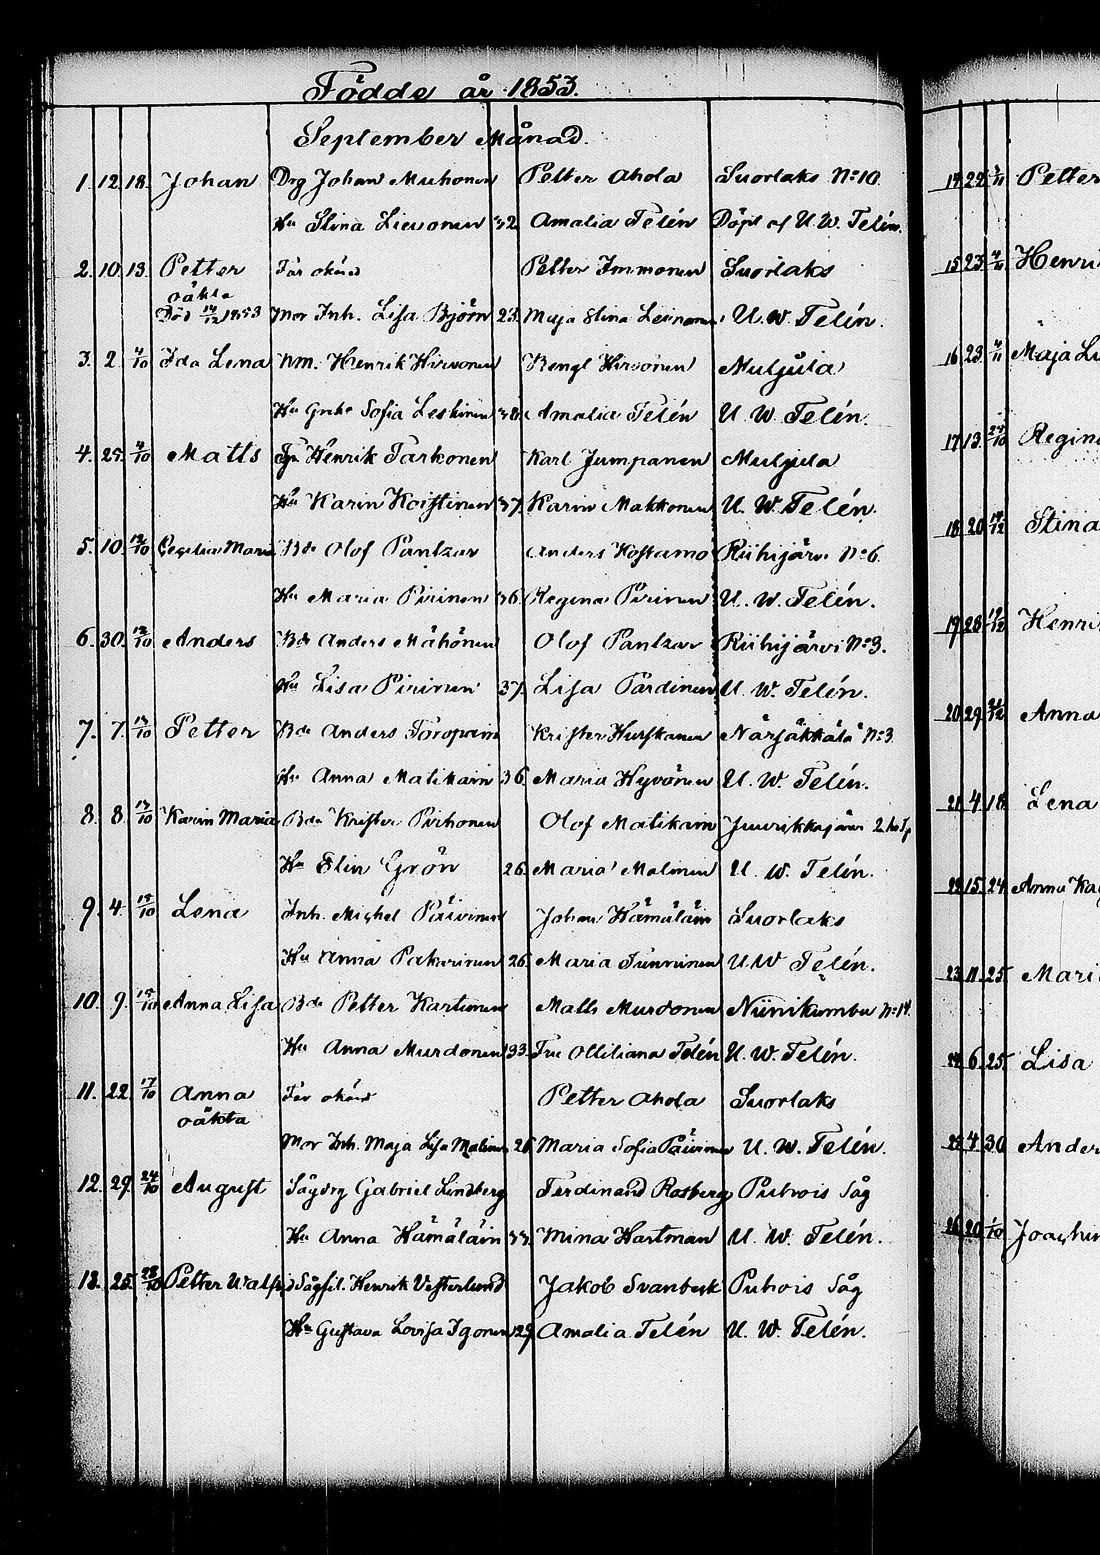 Födde år 1853.
September Månad.
1. 12. 18. Johan Drg Johan Muhonen Petter Ahola Suorlaks No 10.
Hu Stina Liewonen 32 Amalia Telén Döpt af U. W. Telén.
2. 10. 13. Petter Far okänd Petter Immonen Suorlaks
oäkta
Död 14/12 1853 Mor Inh. Lisa Björn 23. Maja Stina U. W. Telén.
3. 2. 4/10 Ida Lena Nm. Henrik Hirvonen Bengt Hirvonen Muljula
Hu Greta Sofia Leskinen 38. Amalia Telén U. W. Telén.
4. 25. 4/10 Matts Henrik Tarkonen Karl Jumpanen Muljula
Hu Karin Koistinen 37. Karin Makkonen U. W. Telén.
5. 10. 12/10 Cecilia Maria Bde Olof Pantzar Anders Kostamo Riihijärvi No 6.
Hu Maria Pirinen 36. Regina Pirinen U. W. Telén.
6. 30. 12/10 Anders Bde Anders Mähönen Olof Pantzar Riihijärvi No 3.
Hu Lisa Pirinen 37. Lisa Pardinen U. W. Telén.
7. 7. 13/10 Petter Bde Anders Toropain Krister Hurskanen Närsäkkälä No 3.
Hu Anna Malikain 36. Maria Hyvönen U. W. Telén.
8. 8. 13/10 Karin Maria Bde Krister Pirhonen Olof Malikain Juurikkajärvi
Hu Elin Grön 26. Maria Malinen U. W. Telén.
9. 4. 15/10 Lena Inh. Michel Päivinen Johan Hämäläin Suorlaks
Hu Anna Pakarinen 26. Maria U. W. Telén.
10. 9. 15/10 Anna Lisa Bde Petter Kartunen Matts Murdonen Niinikumbu No 14.
Hu Anna Murdonen 33. Fru Ottiliana Telén U. W. Telén.
11. 22. 17/10 Anna Far okänd Petter Ahola Suorlaks
oäkta
Mor Inh. Maja Lisa Malinen 26. Maria Sofia Päivinen U. W. Telén.
12. 29. 24/10 August Sågdrg Gabriel Lindberg Ferdinand Rosberg Puhois Såg
Hu Anna Hämäläin 33. Mina Hartman U. W. Telén.
13. 25. 28/10 Petter Walfrid Sågfil. Henrik Vesterlund Jakob Svanbeck Puhois Såg
Hu Gustava Lovisa Igonen 29. Amalia Telén U. W. Telén.
14 22. Petter
15 23. Henri
16 23. Maja
17 13. Regina
18 20. Stina
19 28. Henri
20 29. Anna
21 4. 18. Lena
22 15. 24. Anna
23 11. 25. Mari
24 6. 25. Lisa
25 4 30 Ander
26 20 1/10 Joachim